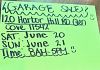 GARAGE SALE!
120 Harbor Hill Rd Glen
Cove 11542
SAT. JUNE 20
SUN. JUNE 21
Time 8AM-5PM